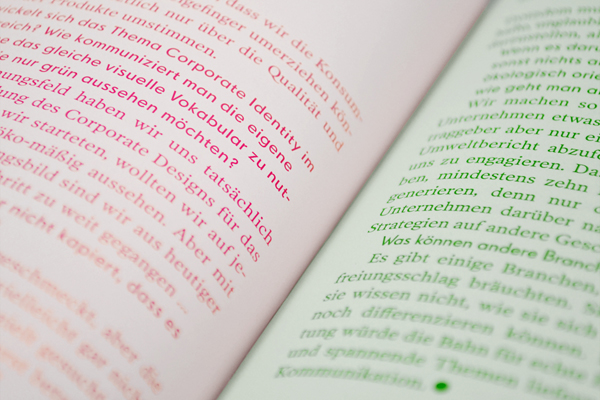 dass wir die Konsum-
gefinger umerziehen kön-
Produkte umstimmen. nicht nur über die Qualität und
wickelt sich das Thema Corporate Identity im
reich? Wie kommuniziert man die eigene
das gleiche visuelle Vokabular zu nut-
nur grün aussehen möchten?
ungsfeld haben wir uns tatsächlich
lung des Corporate Designs für das
wir starteten, wollten wir auf je-
öko-mäßig aussehen. Aber mit
ngsbild sind wir aus heutiger
hritt zu weit gegangen ...
nicht kapiert, dass es
geschmeckt, aber die
gar nicht
wenn es daru
sonst nichts a
ökologisch orie
wie geht man a
Wir machen so
Unternehmen etwas
traggeber aber nur ei
Umweltbericht abzufe
uns zu engagieren. Da
ben, mindestens zehn
generieren, denn nur d
Unternehmen darüber na
Strategien auf andere Gesc
Was können andere Branch
Es gibt einige Branchen,
freiungsschlag bräuchten. S
sie wissen nicht, wie sie sich
noch differenzieren können.
rung würde die Bahn für echte
und spannende Themen liefer
Kommunikation.